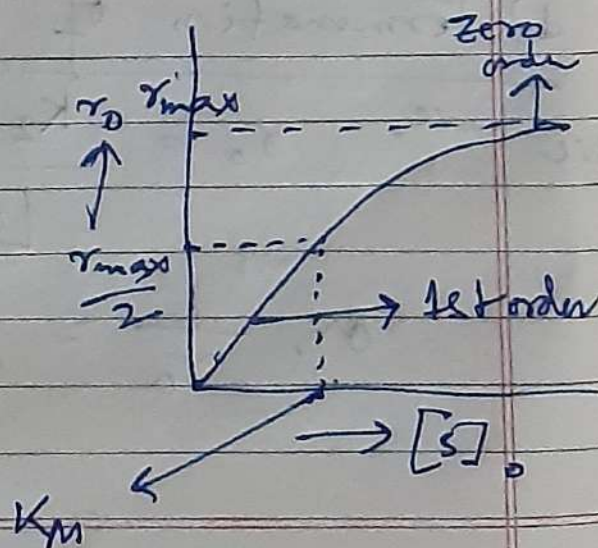 Zero
order
r₀ rmax
rmax
2
1st order
→ [S]₀
KM